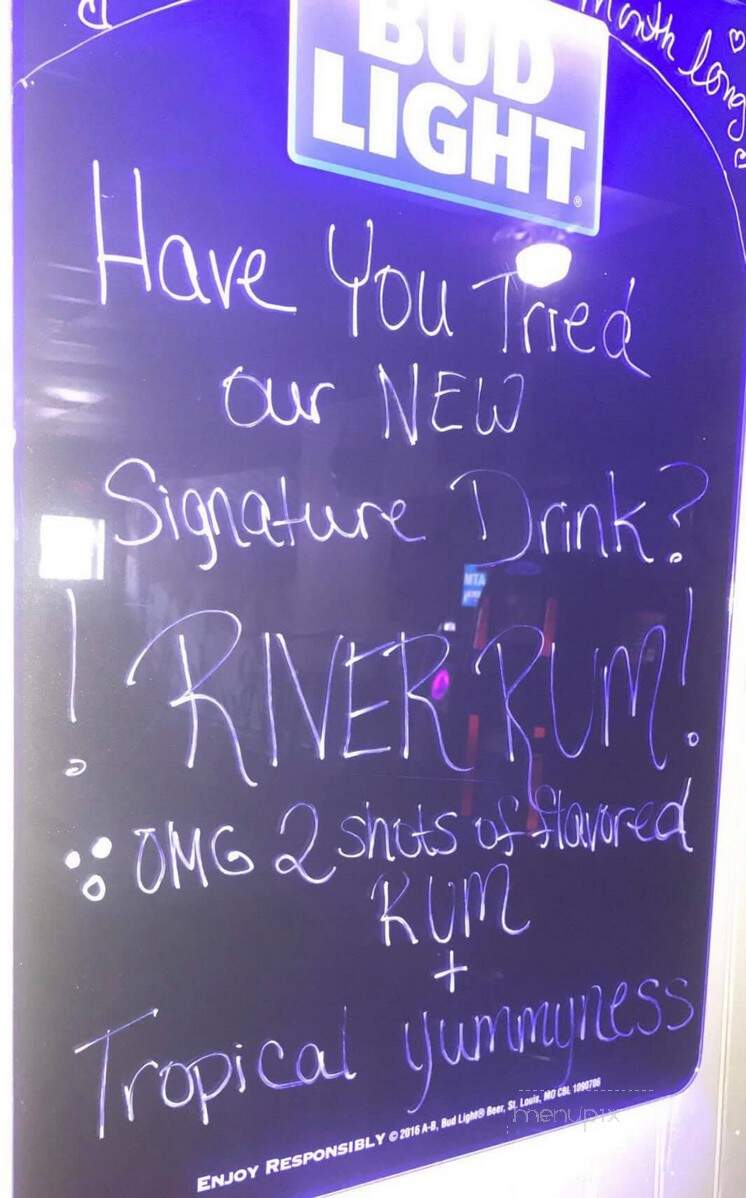 Month long
BUD
LIGHT
Have You Tried
our NEW
Signature Drink?
! RIVER RUM!
OMG 2 shots of flavored
RUM
+
Tropical yummyness
MTA
ENJOY RESPONSIBLY © 2016 A-B, Bud Light® Beer, St. Louis, MO CBL 1090706
menupix